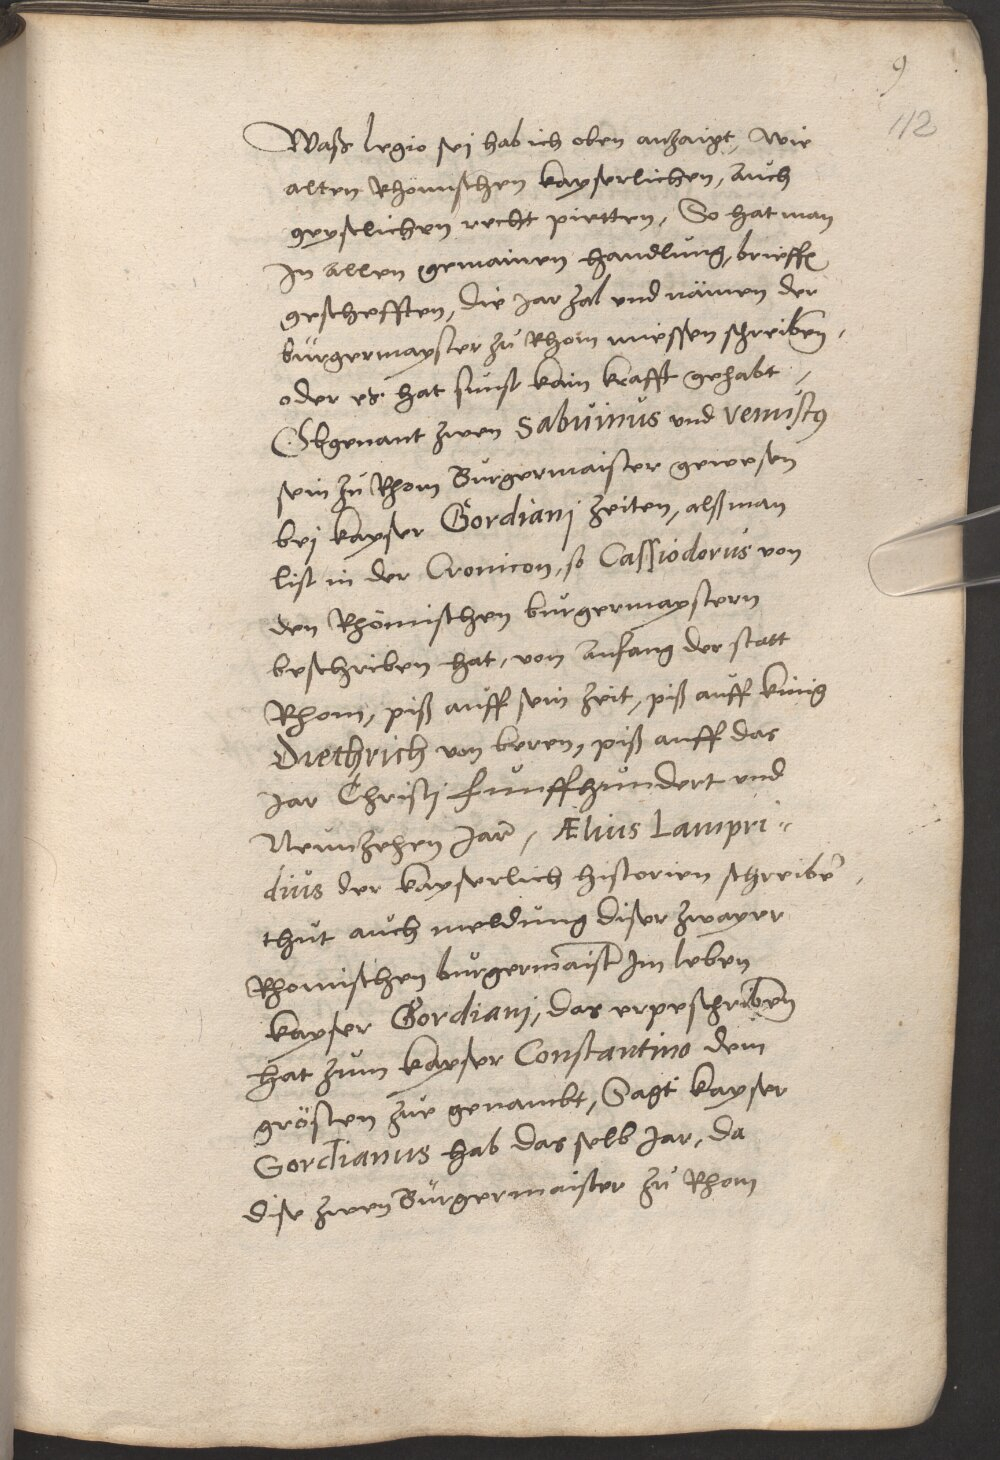 9
112
Waß legio sej hab ich oben anzaigt, wie
alten Rhömischen kayserlichen, auch
geystlichen recht pietten, So hat man
In allen gemainen handlung, brieffe
geschefften, die Jar zal und nämen der
bürgermayster zu Rhom miessen schreiben,
oder es hat sunst kain krafft gehabt,
Obgenant zwen Sabvinus und Venustus
sein zu Rhom Burgermaister gewesen
bej kayser Gordianj zeiten, alß man
list in der Cronicon, so Cassiodorus von
den Rhömischen burgermaystern
beschriben hat, von anfang der statt
Rhom, piß auff sein zeit, piß auff künig
Diethrich von beren, piß auff das
Jar Christj funffhundert und
Neunzehen Jar, Ælius Lampri=
dius der kayserlich historien schreiber,
thut auch meldung diser zwayer
Rhomischen burgermaister Im leben
kayser Gordianj, das er peschriben
hat zum kayser Constantino dem
grösten zue genambt, Sagt kayser
Gordianus hab das selb Jar, da
dise zwen Burgermaister zu Rhom